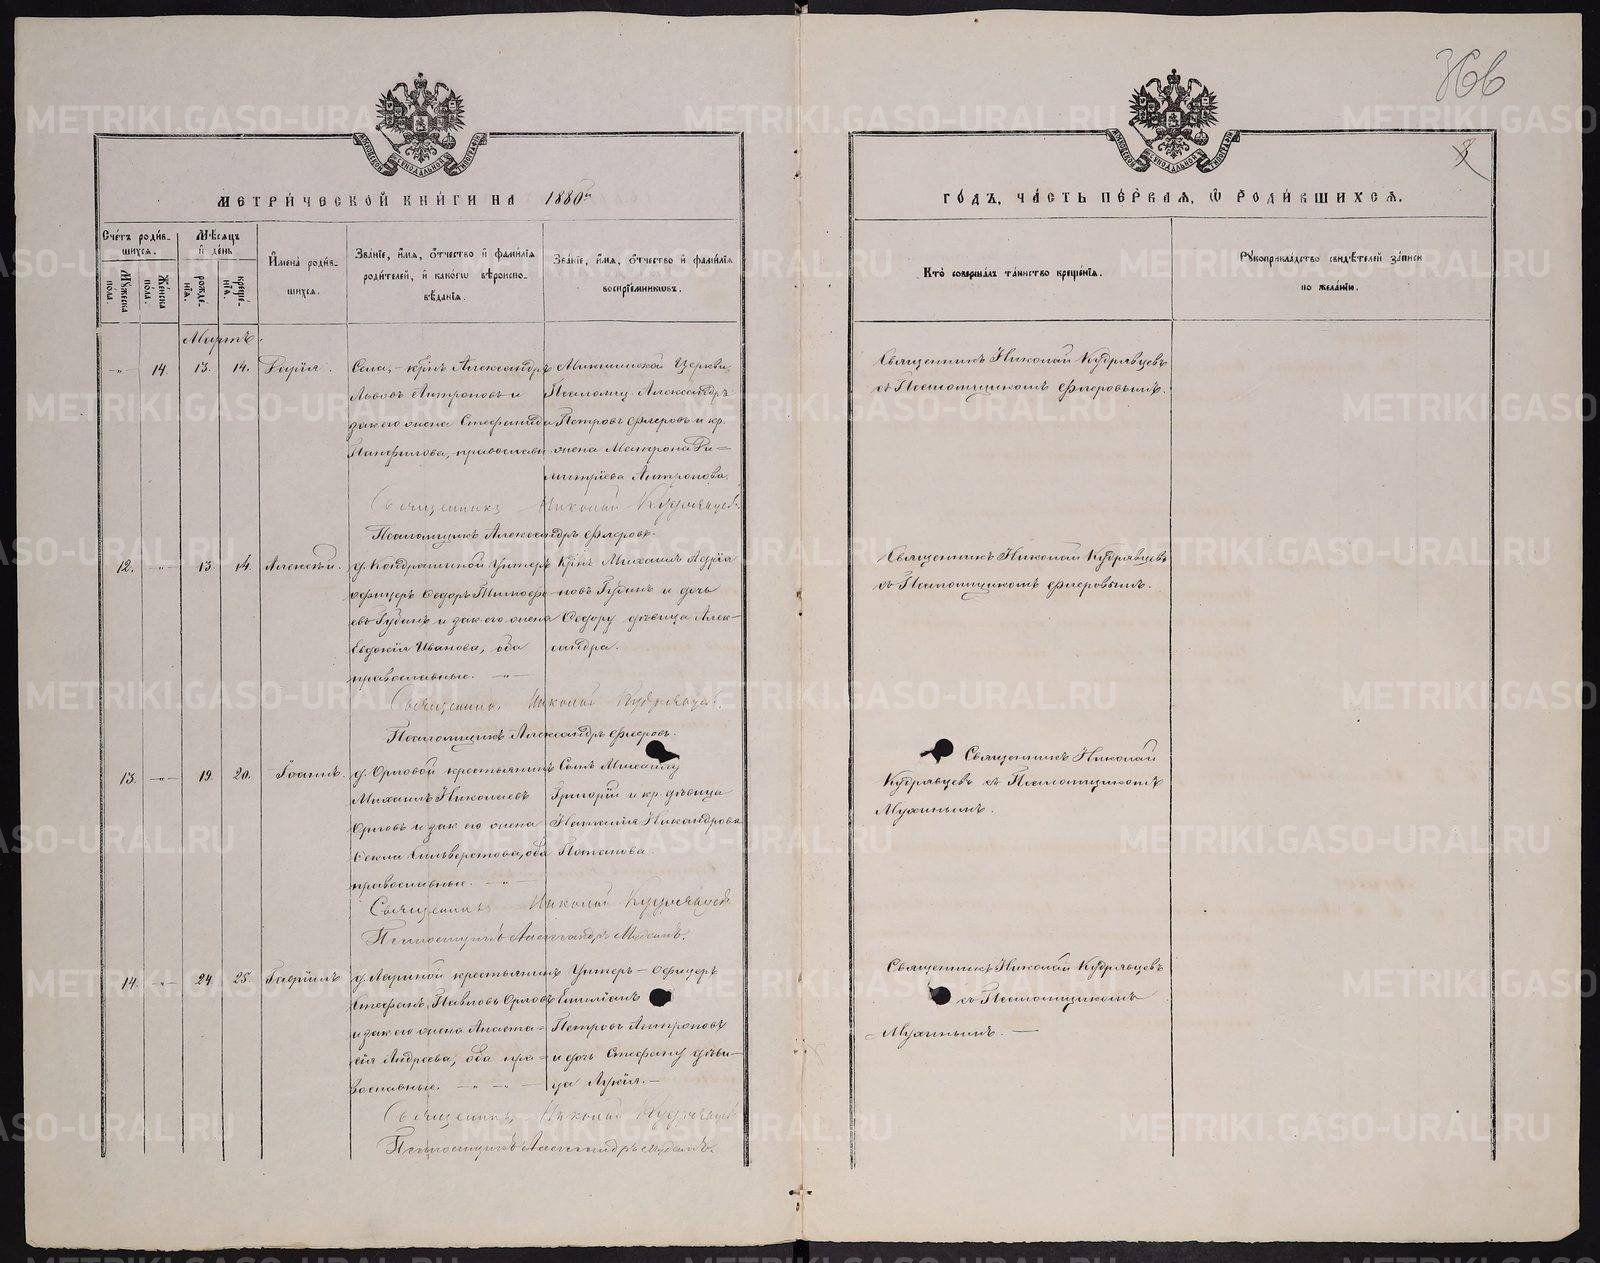 МЕТРИ́ЧЕСКОЙ КНИ́ГИ НА 1880й
ГО́ДЪ, ЧА́СТЬ ПЕ́РВАЯ, Ѡ РОДИ́ВШИХСЯ.
366
3
Сче́тъ роди́в-
шихся.
Му́жеска по́ла.
Же́нска по́ла.
Мѣ́сяцъ
и де́нь
рожде́-
нїя.
креще́-
нїя.
Имена̀ роди́в-
шихся.
Зва́нїе, и́мя, о́тчество и фами́лїя
роди́телей, и како́гѡ вѣроиспо-
вѣ́данїя.
Зва́нїе, и́мя, о́тчество и фами́лїя
воспрїе́мникѡвъ.
Кто̀ соверша́лъ та́инство креще́нїя.
Рꙋкоприкла́дство свидѣ́телей за́писи
по жела́нїю.
Мартъ.
-"- 14. 13. 14.
Села, - крн҃ъ Александръ
Львовъ Антроповъ и
зак. его жена Стефанида
Панфилова, православн.
Церкви,
Псаломщ. Александръ
Петровъ Флеровъ и кр.
жена Матрона Ди=
митріева Антропова.
Священникъ Николай Кудрявцевъ
съ Псаломщикомъ Флеровымъ.
Священникъ Николай Кудрявцевъ
Псаломщикъ Александръ Флеровъ.
12. -"- 13 14. Алексѣй.
д. Кондрашиной Унтеръ
офицеръ Ѳедоръ Тимоѳе-
евъ Губинъ и зак. его жена
Евдокія Иванова, оба
православные. -"-
Крн҃ъ Михаилъ Адріа
новъ Губинъ и дочь
Ѳедору дѣвица Алек-
сандра.
Священникъ Николай Кудрявцевъ
съ Псаломщикомъ Флеровымъ.
Священникъ Николай Кудрявцевъ.
Псаломщикъ Александръ Флеровъ.
13. -"- 19. 20. Іоаннъ.
д. Орловой крестьянинъ
Михаилъ Николаевъ
Орловъ и зак. его жена
Ѳекла Сильверстова, оба
православные. -"-
Сынъ Михаилу
Григорій и кр. дѣвица
Наталія Никандрова
Потапова.
Священникъ Николай
Кудрявцевъ съ Псаломщикомъ
Мухинымъ.
Священникъ Николай Кудрявцевъ
Псаломщикъ Александръ Мухинъ.
14. -"- 24. 25. Гавріилъ
д. Лариной крестьянинъ
Стефанъ Павловъ Орловъ
и зак. его жена Анаста=
сія Андреева, оба пра=
вославные. -"- -"-
Унтеръ-офицеръ
Емиліанъ
Петровъ Антроповъ
и дочь Стефану дѣви-
ца Лукія. -
Священникъ Николай Кудрявцевъ
съ Псаломщикомъ
Мухинымъ. -
Священникъ Николай Кудрявцевъ
Псаломщикъ Александръ Мухинъ.
METRIKI.GASO-URAL.RU